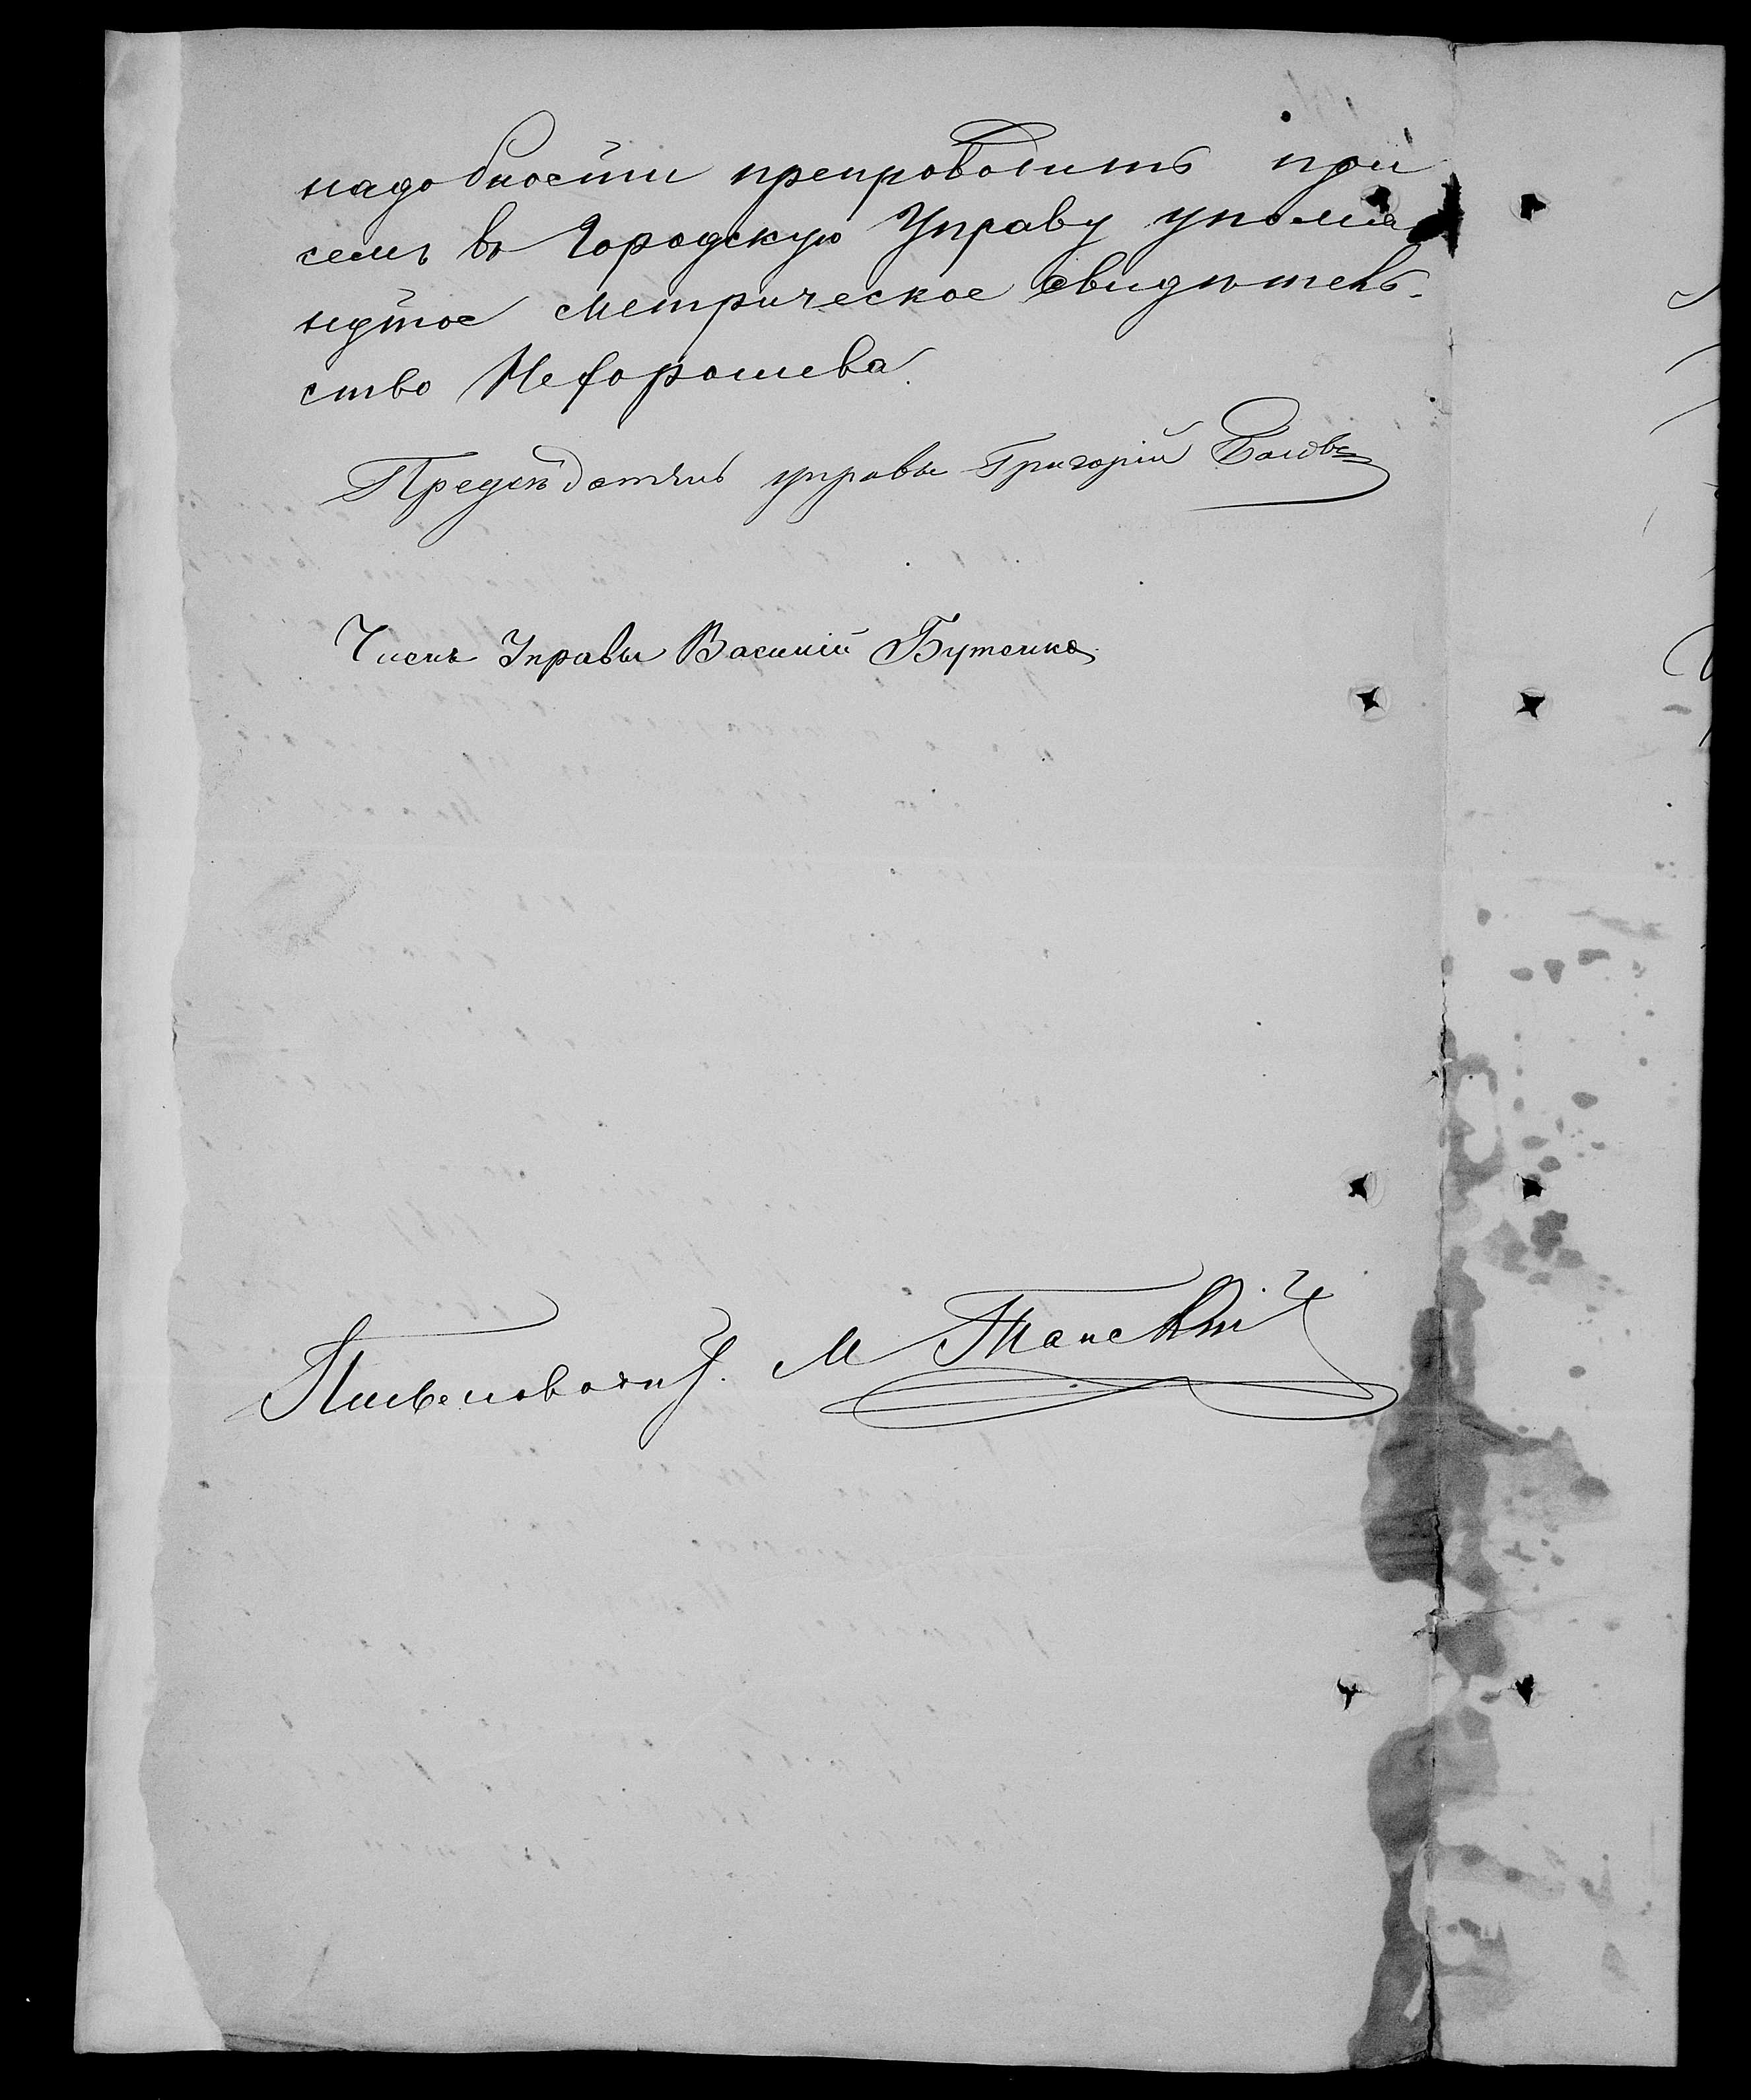 надобности препроводить при
семъ въ Городскую Управу упомя
нутое метрическое свидѣтель-
ство Нефорошева.
Предсѣдатель управы Григорій
Членъ Управы Василій Бутенко
Письмоводит. М